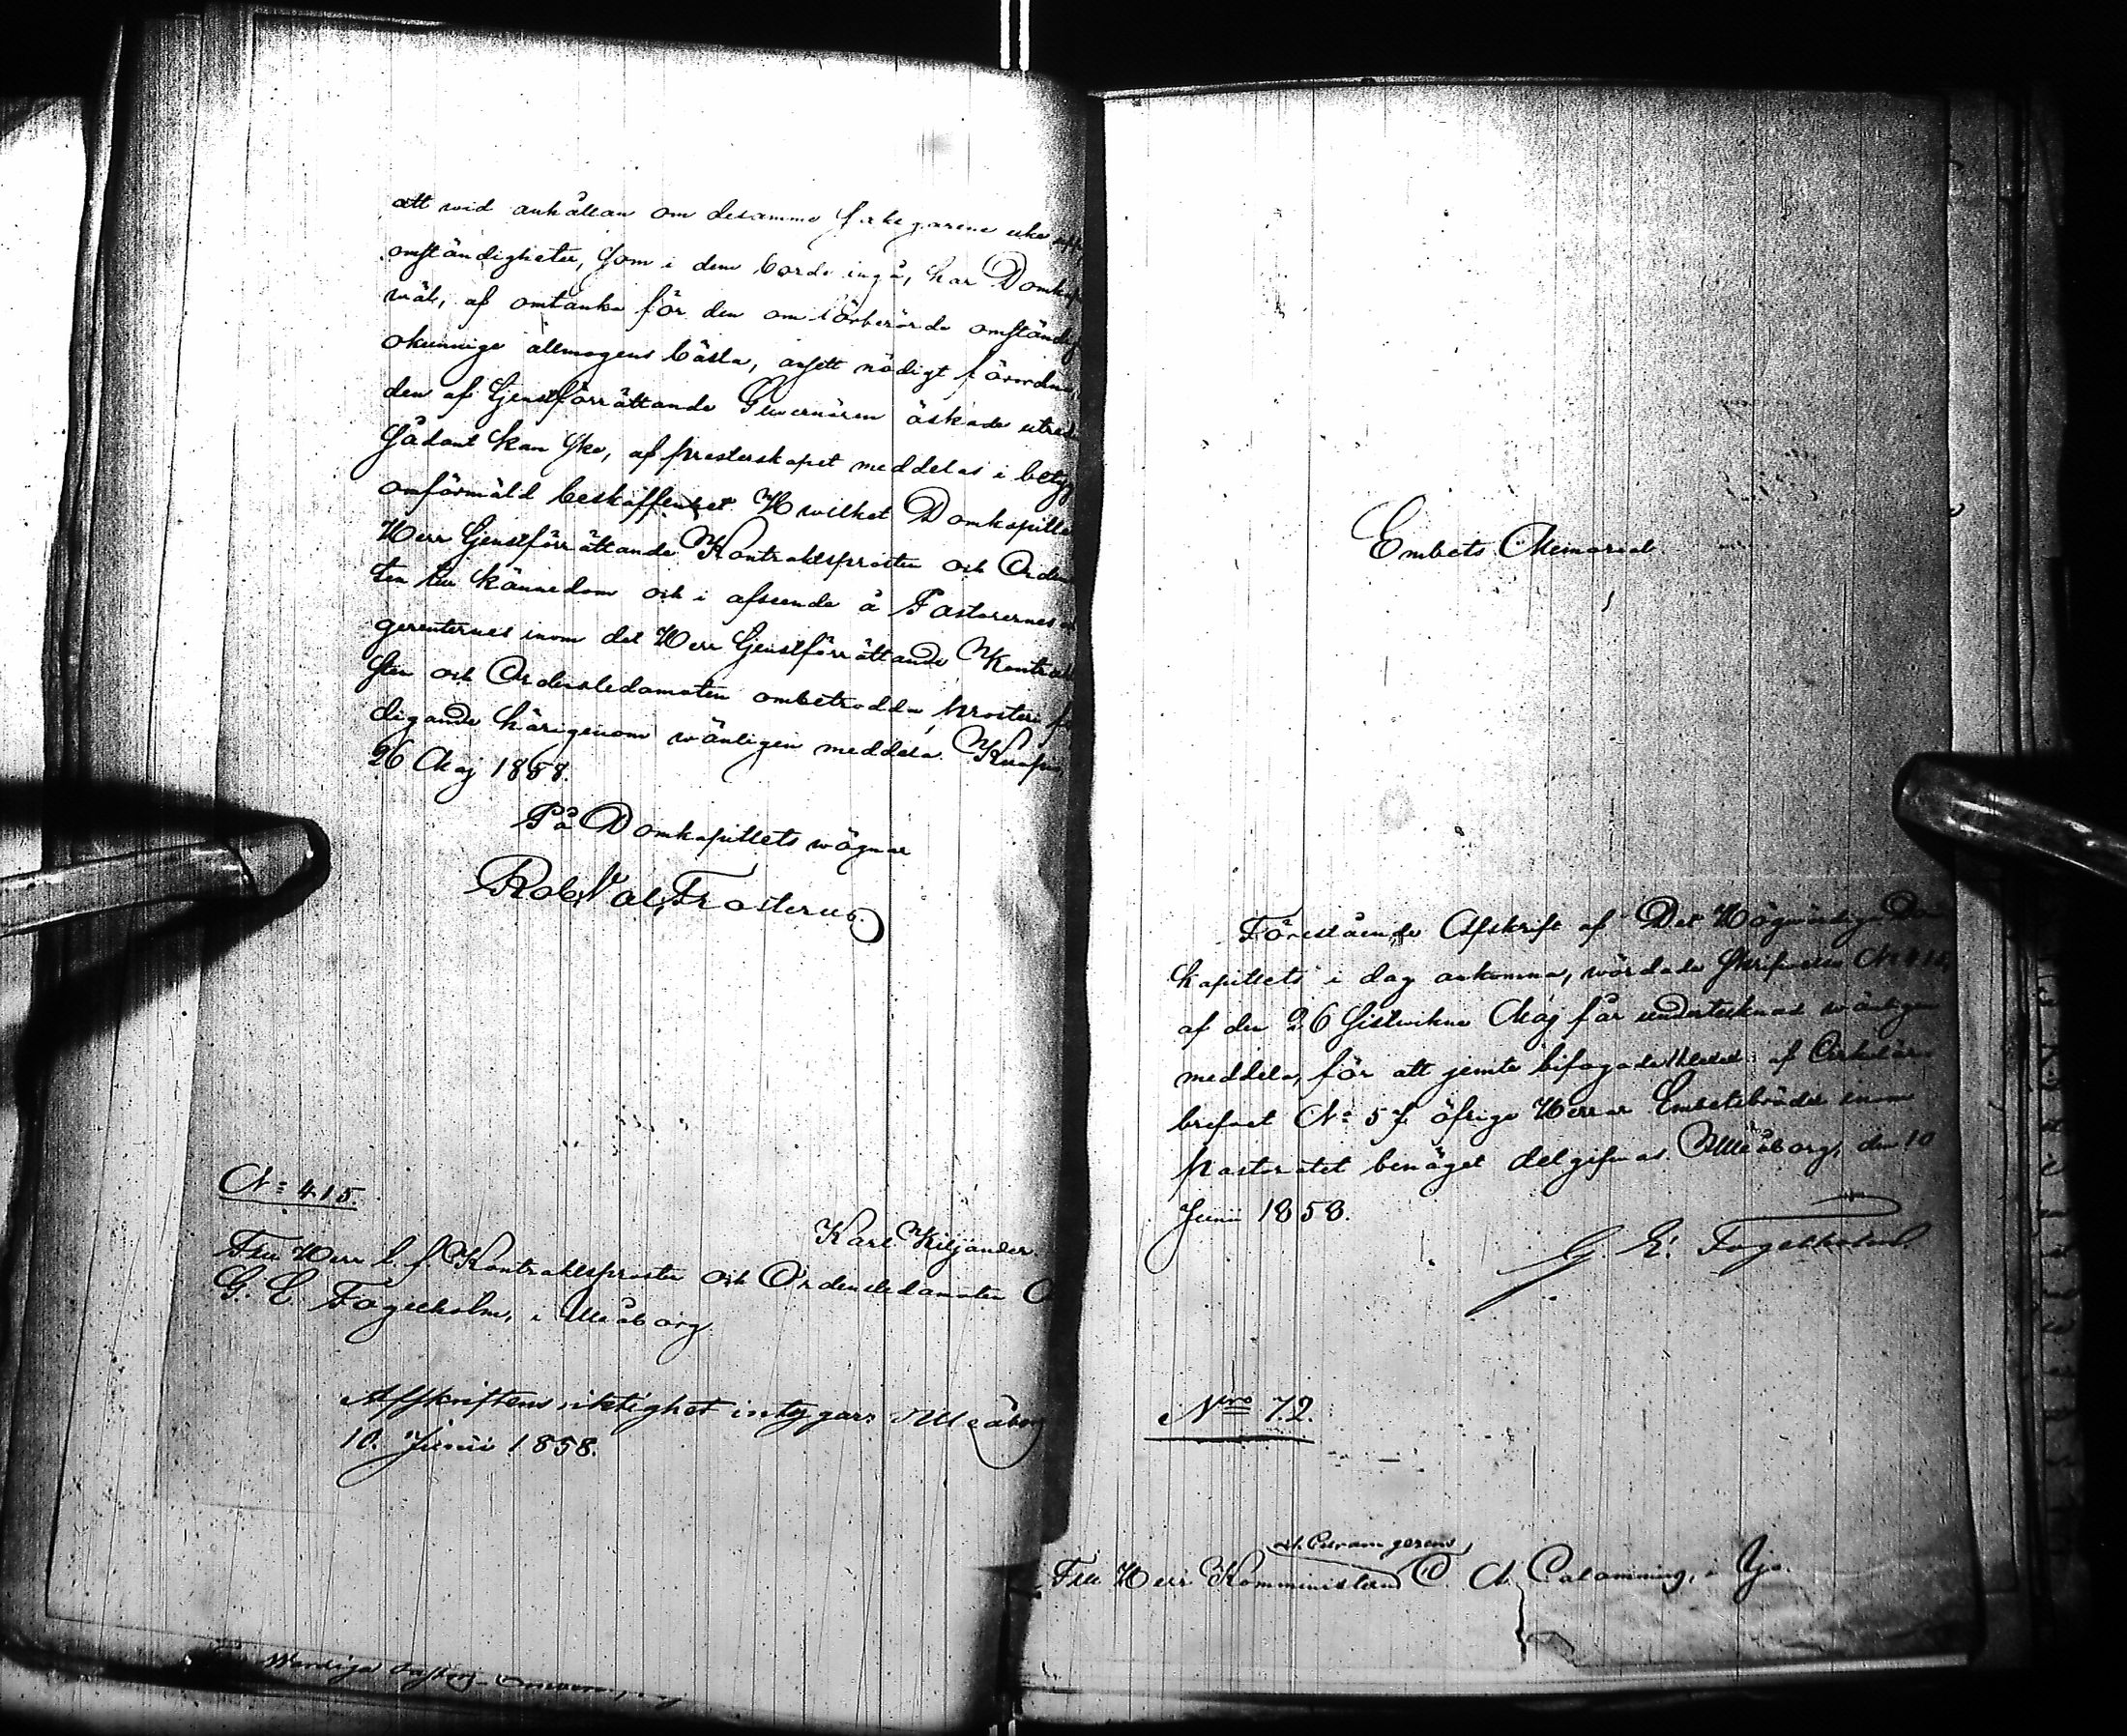 att wid anhållan om desamma
omständigheter, som i dem borde ingå, har Domkap
wäl, af omtanke för den om förberörde omständig
okunnige allmogens bästa, ansett nödigt förordna,
den af tjenstförrättande Guvernören äskade utred
sådant kan ske, af presterskapet meddelas i betyg
omförmäld beskaffenhet. Hwilket Domkapitle
Herr tjenstförrättande Kontraktsprosten och Orden
ten till kännedom och i afseende å Pastorernes
gerenternes inom det Herr tjenstförrättande Kontrak
sten och Ordensledamoten ombetrodda prosteri
digande härigenom wänligen meddela. Kuopio
26 Maj 1858.
På Domkapitlets wägnar
Rob. Val. Frosterus.
Karl Kiljander.
N:o 415.
Till Herr t. f. Kontraktsprosten och Ordensledamoten
G. E. Fogelholm, i Uleåborg.
Afskriftens riktighet intygar: Uleåborg
10. Junii 1858.
Embets Memorial
Förestående Afskrift af Det Högwördiga Dom
kapitlets i dag ankomna, wördade skrifwelse N:o 415,
af den 26 sistwikne Maj får undertecknad wänligen
meddela, för att jemte bifogade af Cirkulär
brefwet N:o 57. öfrige Herrar Embetsbröder inom
pastoratet benäget delgifwas. Uleåborg, den 10
Junii 1858.
G. E. Fogelholm.
Nro 72.
Till Herr Komministern C. A. Calamnius, i Ijo.